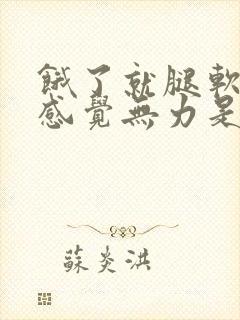 餓了就腿軟
感覺無力是
蘇炎洪